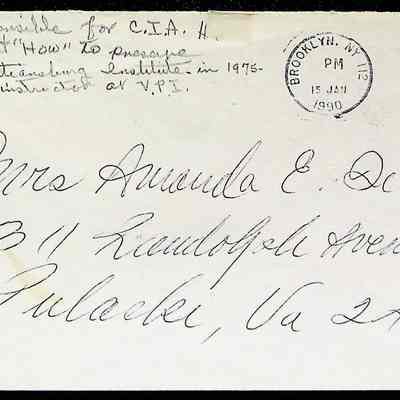 onsible for C.I.A. H.
"How" to
Institute in 1975-
instructor at V.P.I.
BROOKLYN, NY 112
PM
15 JAN
1990
Mrs Amanda E. De
311 Randolph Aven
Pulaski, Va 24